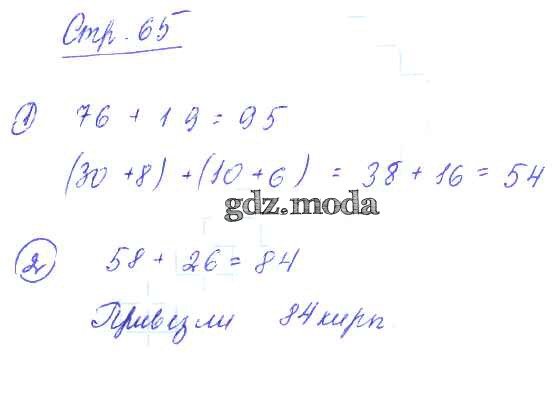 Стр. 65
1) 76 + 19 = 95
(30 + 8) + (10 + 6) = 38 + 16 = 54
gdz.moda
2) 58 + 26 = 84
Привезли 84